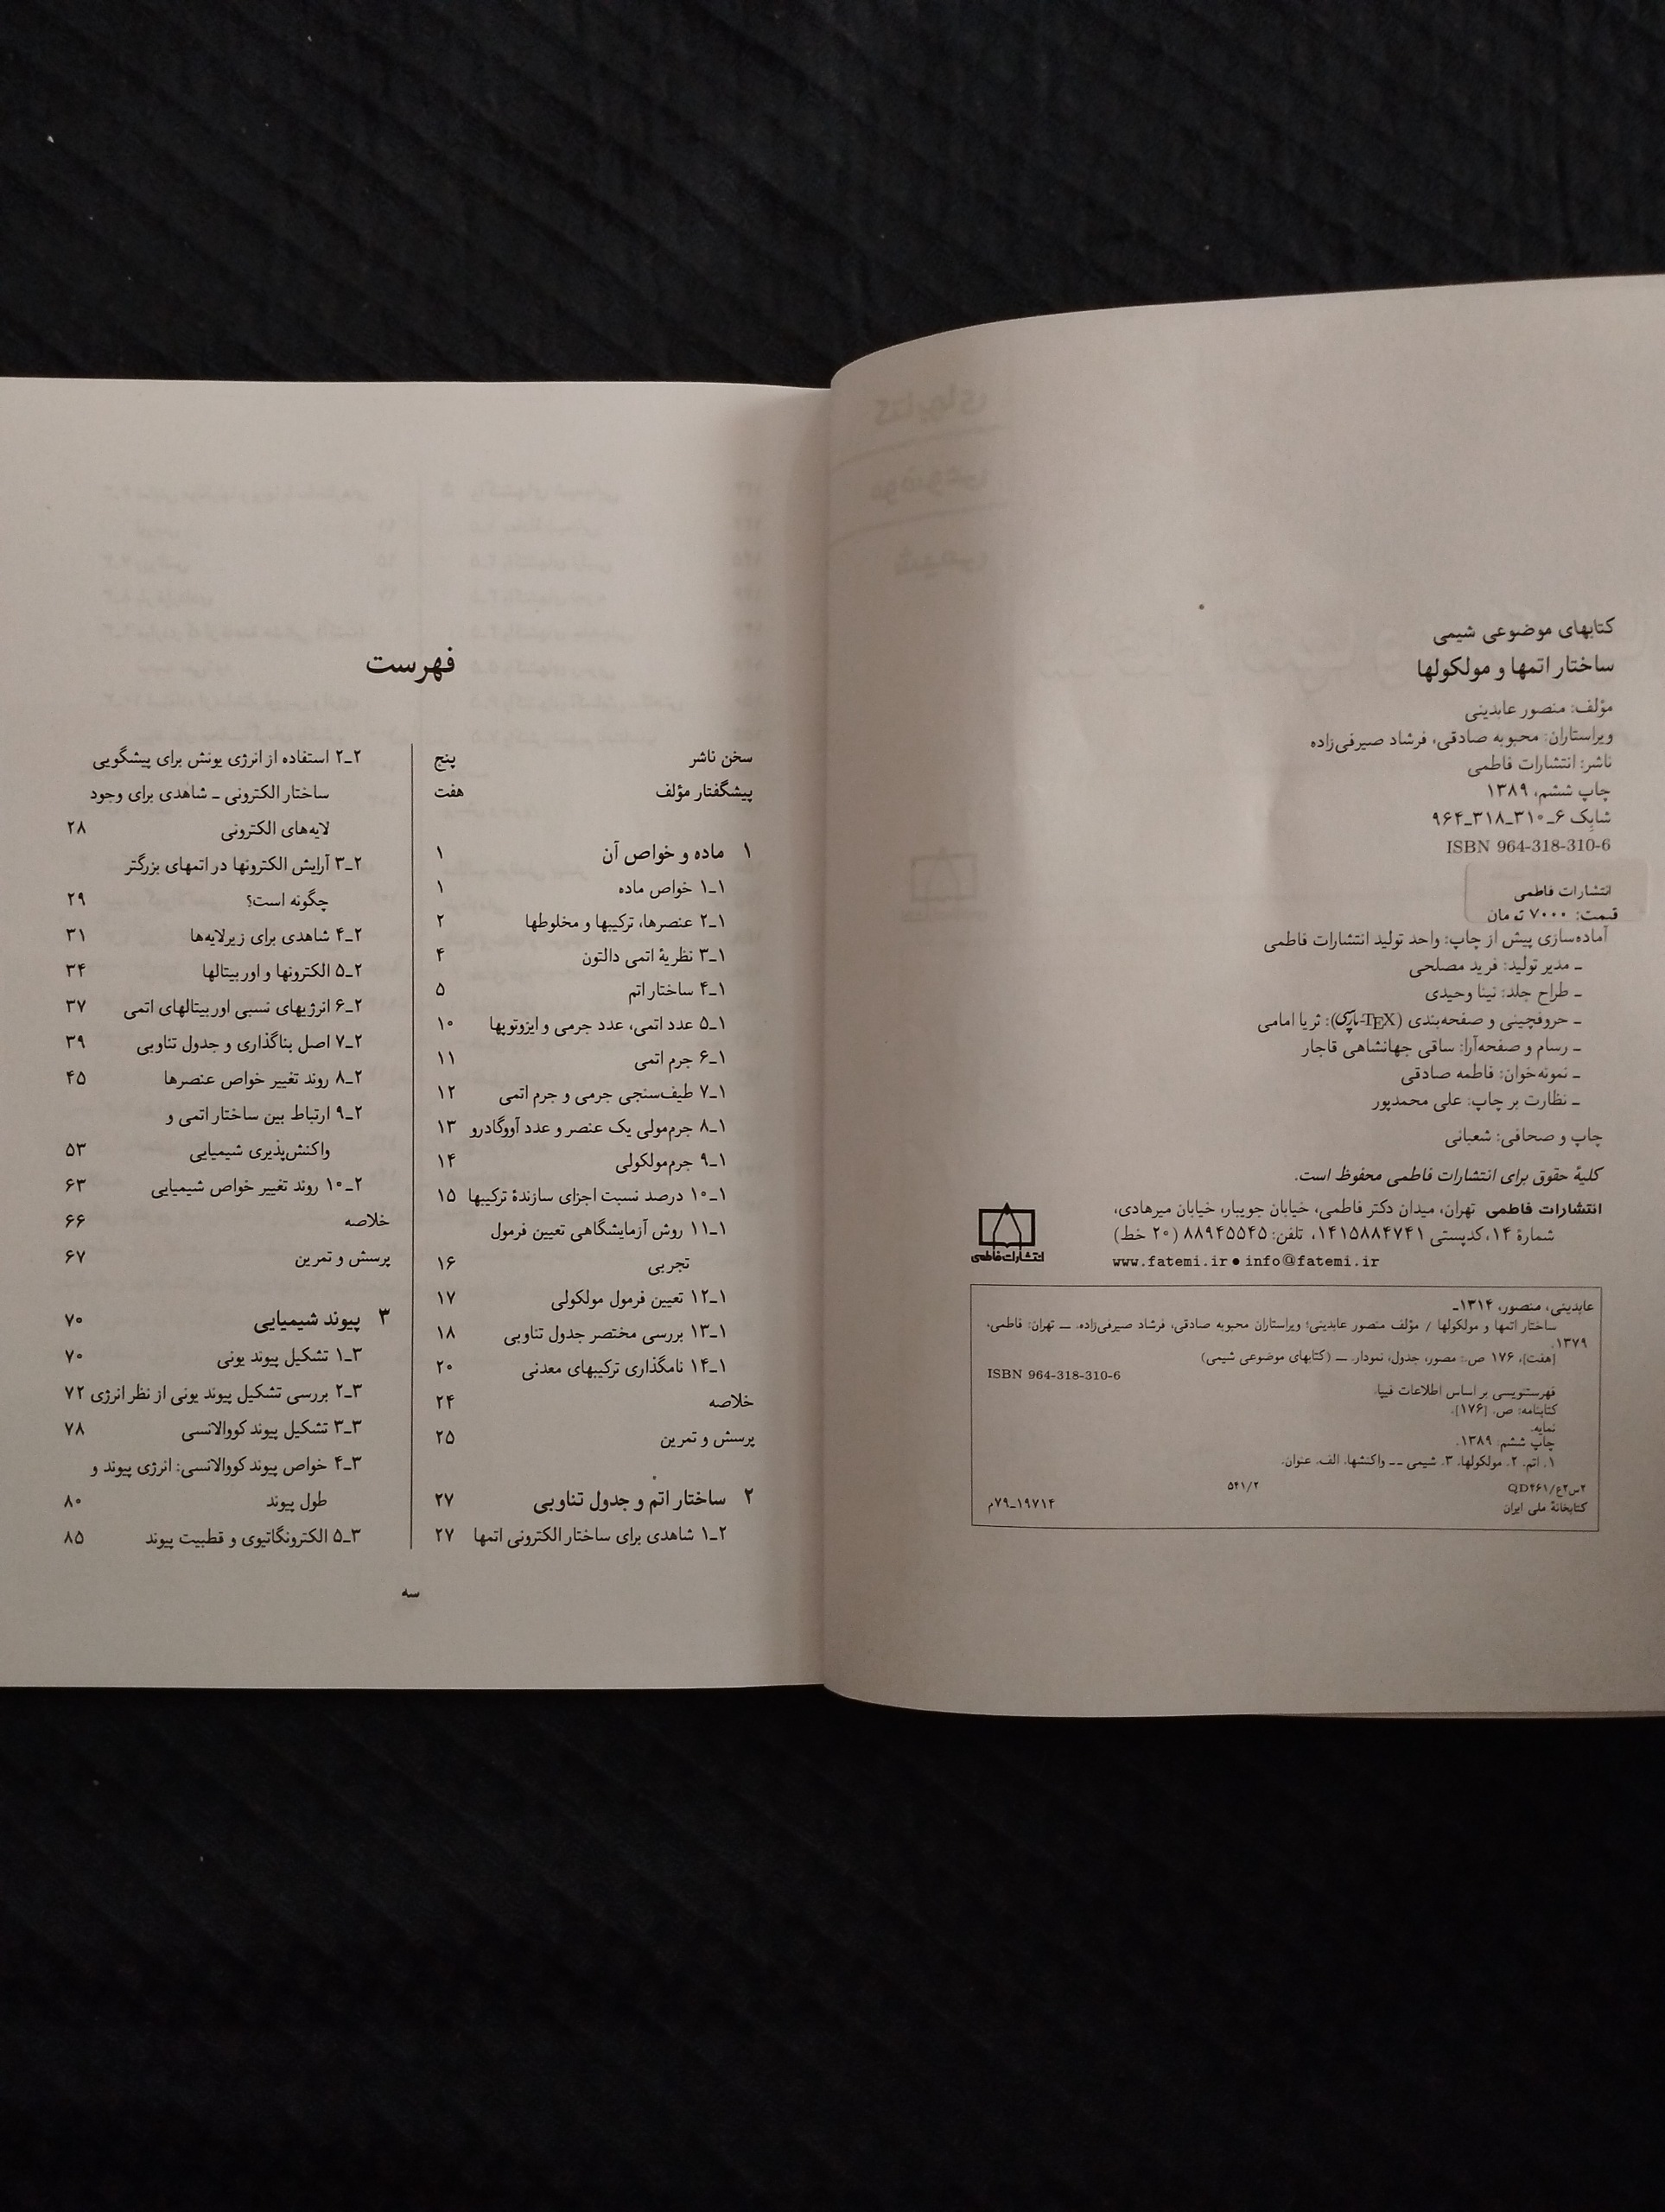 کتابهای موضوعی شیمی
ساختار اتمها و مولکولها
مؤلف: منصور عابدینی
ویراستاران: محبوبه صادقی، فرشاد صیرفی‌زاده
ناشر: انتشارات فاطمی
چاپ ششم، ۱۳۸۹
شابک ۶ـ۳۱۰ـ۳۱۸ـ۹۶۴
ISBN 964-318-310-6
انتشارات فاطمی
قیمت: ۷۰۰۰ تومان
آماده‌سازی پیش از چاپ: واحد تولید انتشارات فاطمی
ـ مدیر تولید: فرید مصلحی
ـ طراح جلد: نینا وحیدی
ـ حروفچینی و صفحه‌بندی (TEX-پارسی): ثریا امامی
ـ رسام و صفحه‌آرا: ساقی جهانشاهی قاجار
ـ نمونه‌خوان: فاطمه صادقی
ـ نظارت بر چاپ: علی محمدپور
چاپ و صحافی: شعبانی
کلیهٔ حقوق برای انتشارات فاطمی محفوظ است.
انتشارات فاطمی تهران، میدان دکتر فاطمی، خیابان جویبار، خیابان میرهادی،
شمارهٔ ۱۴، کدپستی ۱۴۱۵۸۸۴۷۴۱، تلفن: ۸۸۹۴۵۵۴۵ (۲۰ خط)
www.fatemi.ir • info@fatemi.ir
انتشارات فاطمی
عابدینی، منصور، ۱۳۱۴ـ
ساختار اتمها و مولکولها / مؤلف منصور عابدینی؛ ویراستاران محبوبه صادقی، فرشاد صیرفی‌زاده. ــ تهران: فاطمی،
۱۳۷۹.
[هفت]، ۱۷۶ ص.: مصور، جدول، نمودار. ــ (کتابهای موضوعی شیمی)
ISBN 964-318-310-6
فهرستنویسی بر اساس اطلاعات فیپا.
کتابنامه: ص. [۱۷۶].
نمایه.
چاپ ششم: ۱۳۸۹.
۱. اتم. ۲. مولکولها. ۳. شیمی ــ واکنشها. الف. عنوان.
۲س۲ع/QD۴۶۱ ۵۴۱/۲
کتابخانهٔ ملی ایران ۱۹۷۱۴ـ۷۹م
فهرست
سخن ناشر پنج
پیشگفتار مؤلف هفت
۱ ماده و خواص آن ۱
۱ـ۱ خواص ماده ۱
۱ـ۲ عنصرها، ترکیبها و مخلوطها ۲
۱ـ۳ نظریهٔ اتمی دالتون ۴
۱ـ۴ ساختار اتم ۵
۱ـ۵ عدد اتمی، عدد جرمی و ایزوتوپها ۱۰
۱ـ۶ جرم اتمی ۱۱
۱ـ۷ طیف‌سنجی جرمی و جرم اتمی ۱۲
۱ـ۸ جرم‌مولی یک عنصر و عدد آووگادرو ۱۳
۱ـ۹ جرم‌مولکولی ۱۴
۱ـ۱۰ درصد نسبت اجزای سازندهٔ ترکیبها ۱۵
۱ـ۱۱ روش آزمایشگاهی تعیین فرمول
تجربی ۱۶
۱ـ۱۲ تعیین فرمول مولکولی ۱۷
۱ـ۱۳ بررسی مختصر جدول تناوبی ۱۸
۱ـ۱۴ نامگذاری ترکیبهای معدنی ۲۰
خلاصه ۲۴
پرسش و تمرین ۲۵
۲ ساختار اتم و جدول تناوبی ۲۷
۲ـ۱ شاهدی برای ساختار الکترونی اتمها ۲۷
۲ـ۲ استفاده از انرژی یونش برای پیشگویی
ساختار الکترونی ـ شاهدی برای وجود
لایه‌های الکترونی ۲۸
۲ـ۳ آرایش الکترونها در اتمهای بزرگتر
چگونه است؟ ۲۹
۲ـ۴ شاهدی برای زیرلایه‌ها ۳۱
۲ـ۵ الکترونها و اوربیتالها ۳۴
۲ـ۶ انرژیهای نسبی اوربیتالهای اتمی ۳۷
۲ـ۷ اصل بناگذاری و جدول تناوبی ۳۹
۲ـ۸ روند تغییر خواص عنصرها ۴۵
۲ـ۹ ارتباط بین ساختار اتمی و
واکنش‌پذیری شیمیایی ۵۳
۲ـ۱۰ روند تغییر خواص شیمیایی ۶۳
خلاصه ۶۶
پرسش و تمرین ۶۷
۳ پیوند شیمیایی ۷۰
۳ـ۱ تشکیل پیوند یونی ۷۰
۳ـ۲ بررسی تشکیل پیوند یونی از نظر انرژی ۷۲
۳ـ۳ تشکیل پیوند کووالانسی ۷۸
۳ـ۴ خواص پیوند کووالانسی: انرژی پیوند و
طول پیوند ۸۰
۳ـ۵ الکترونگاتیوی و قطبیت پیوند ۸۵
سه